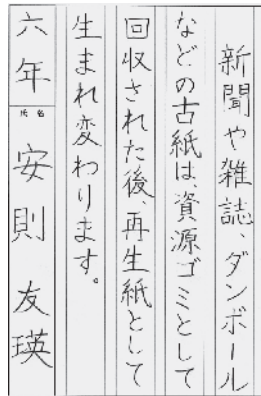 新聞や雑誌、ダンボール
などの古紙は、資源ゴミとして
回収された後、再生紙として
生まれ変わります。
六年
氏名
安則友瑛